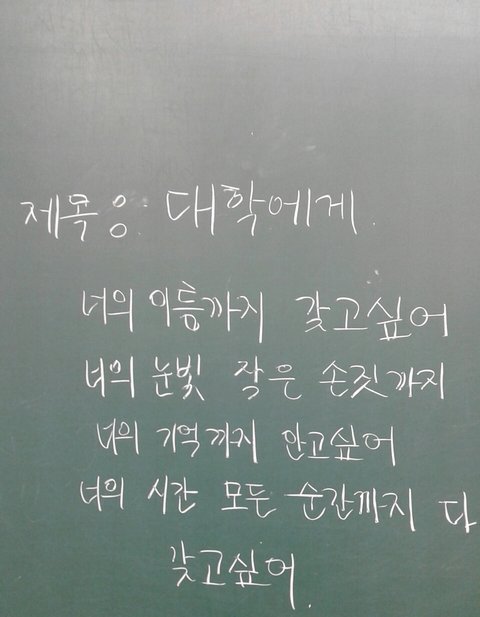 제목응: 대학에게.
너의 이름까지 갖고싶어
너의 눈빛 작은 손짓까지
너의 기억까지 안고싶어
너의 시간 모든 순간까지 다
갖고싶어.